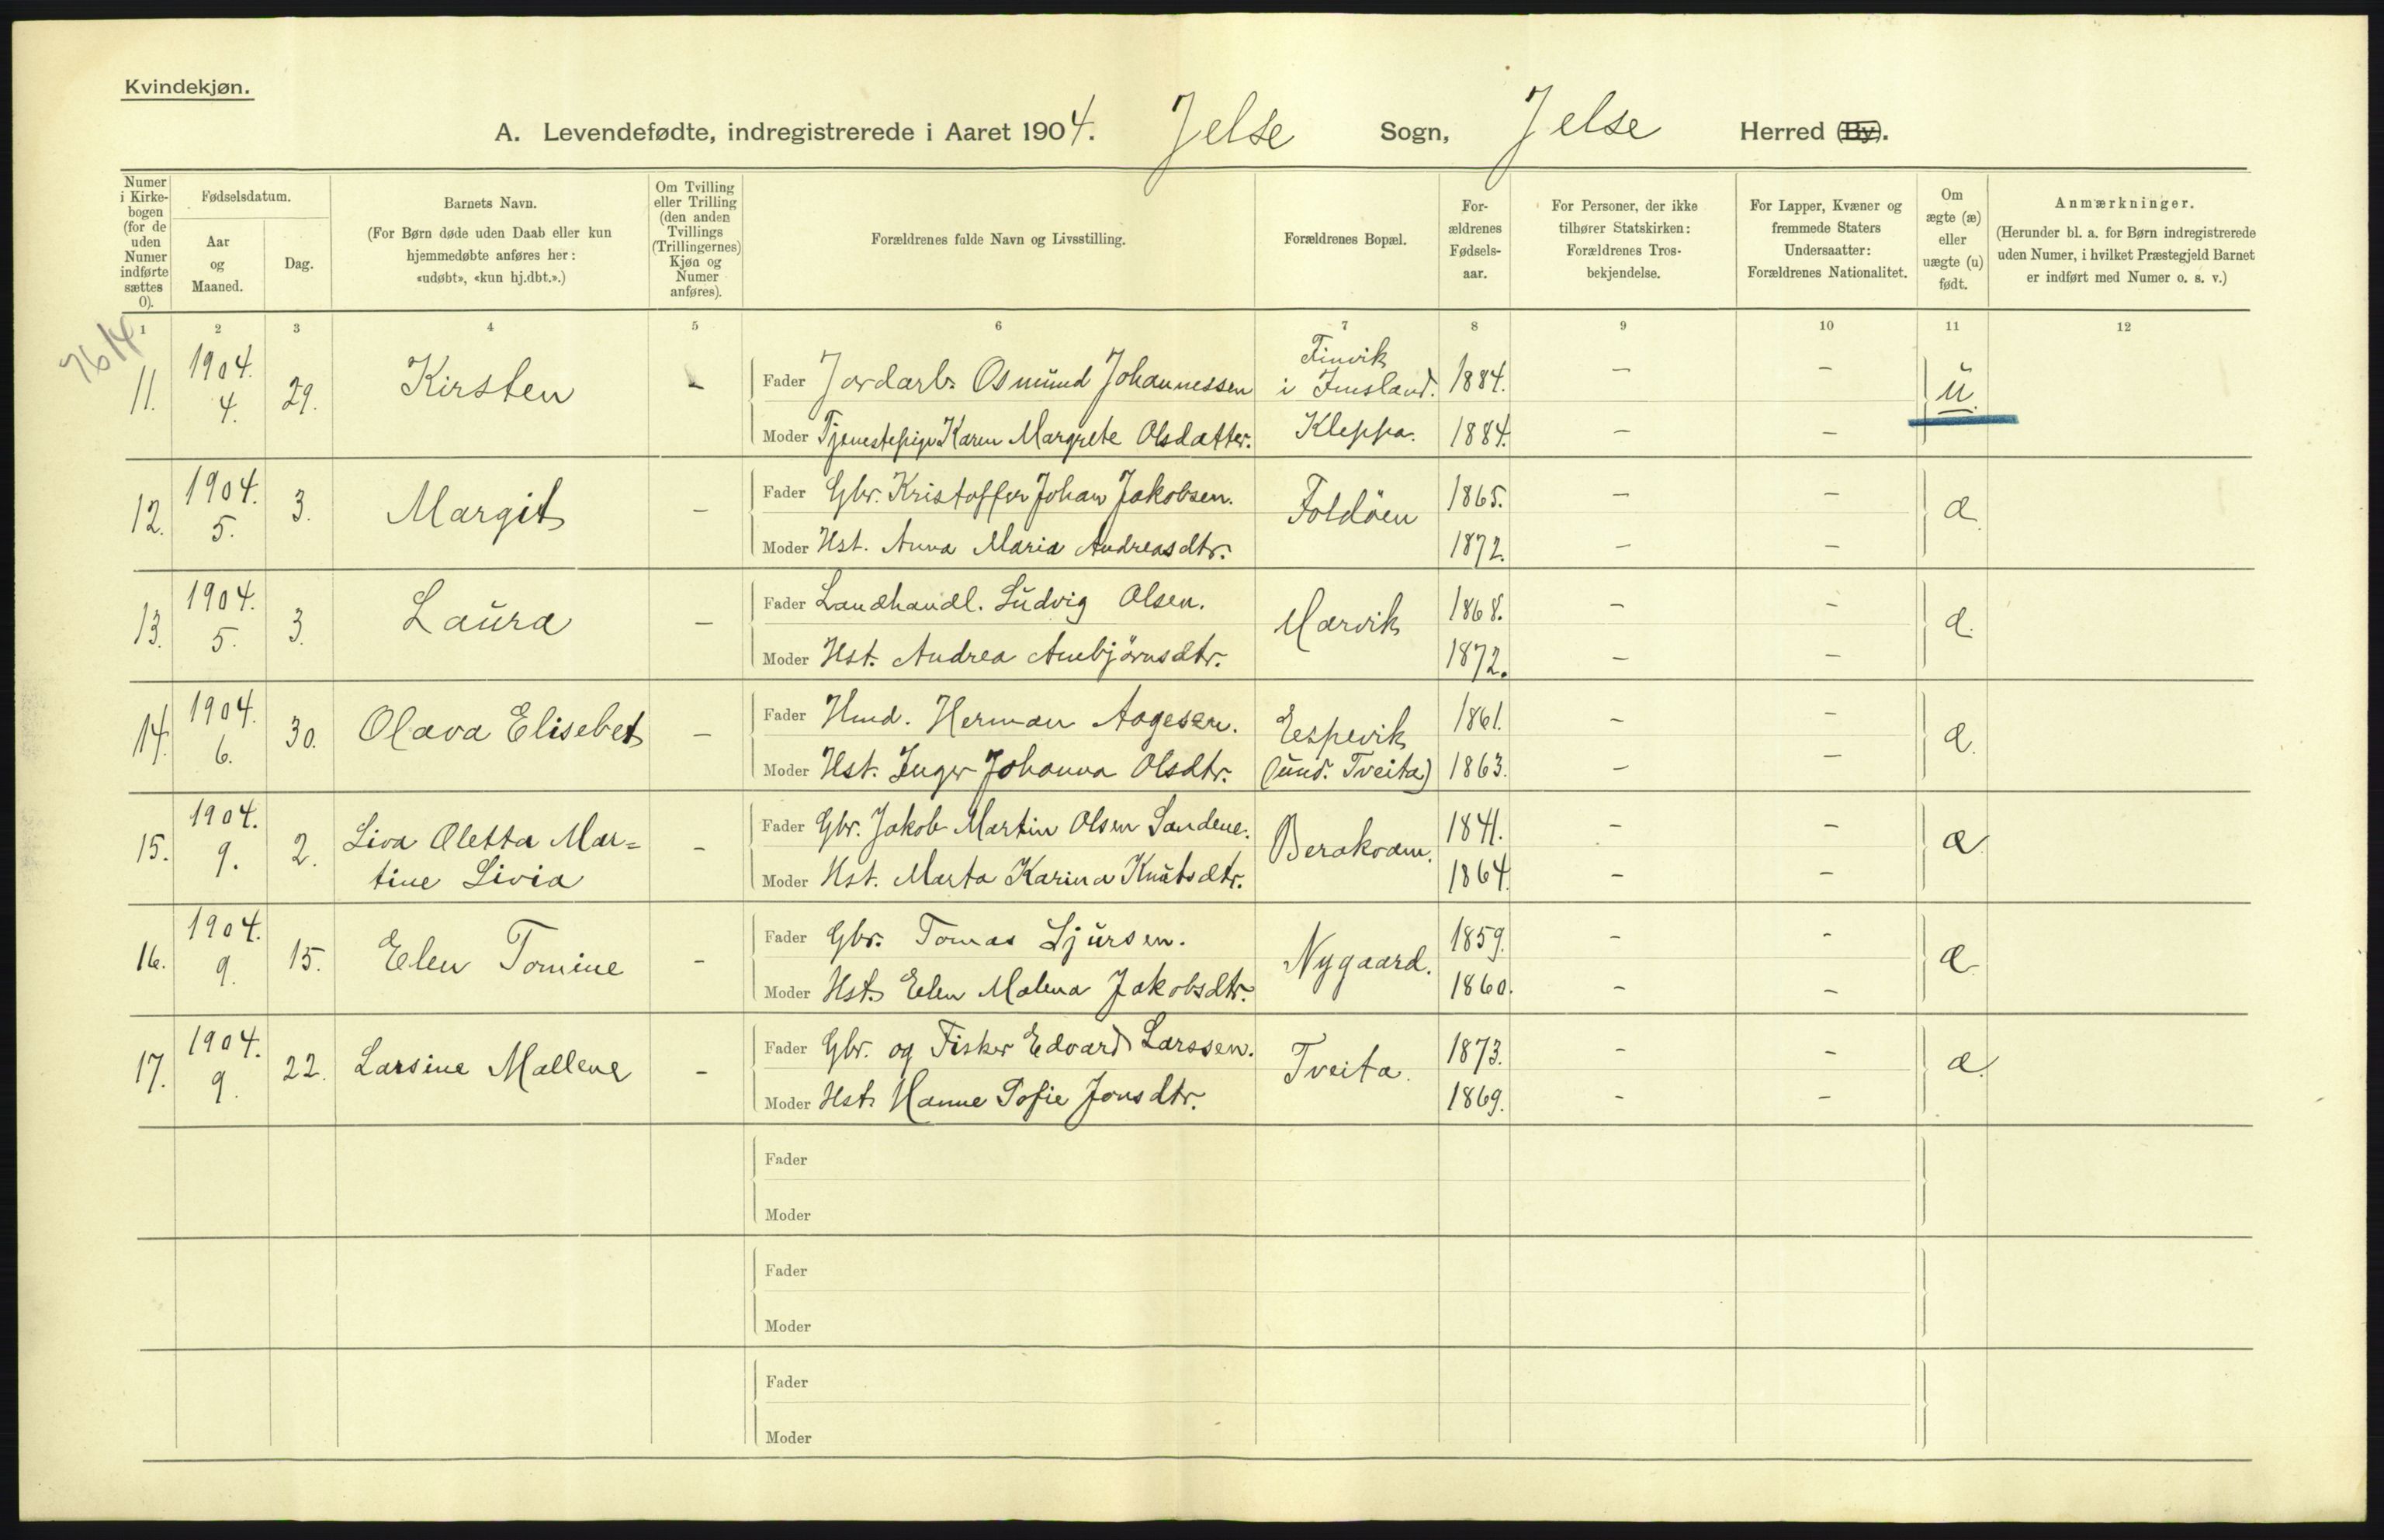 Kvindekjøn.
A. Levendefødte, indregistrerede i Aaret 1904. Jelse Sogn, Jelse Herred (By).
Numer i Kirkebogen (for de uden Numer indførte sættes 0).
Fødselsdatum.
Aar og Maaned.
Dag.
Barnets Navn.
(For Børn døde uden Daab eller kun hjemmedøbte anføres her: «udøbt», «kun hj.dbt.».)
Om Tvilling eller Trilling (den anden Tvillings (Trillingernes) Kjøn og Numer anføres).
Forældrenes fulde Navn og Livsstilling.
Forældrenes Bopæl.
For-ældrenes Fødsels-aar.
For Personer, der ikke tilhører Statskirken: Forældrenes Tros-bekjendelse.
For Lapper, Kvæner og fremmede Staters Undersaatter: Forældrenes Nationalitet.
Om ægte (æ) eller uægte (u) født.
Anmærkninger.
(Herunder bl. a. for Børn indregistrerede uden Numer, i hvilket Præstegjeld Barnet er indført med Numer o. s. v.)
1 2 3 4 5 6 7 8 9 10 11 12
7614
11. 1904. 4. 29. Kirsten - Fader Jordarb. Osmund Johannessen Finvik i Imsland. 1884. - - u.
Moder Tjenestepige Karen Margrete Olsdatter. Kleppa. 1884. - -
12. 1904. 5. 3. Margit - Fader Gbr. Kristoffer Johan Jakobsen. Foldöen 1865. - - æ.
Moder Hst. Anna Maria Andreasdtr. 1872. - -
13. 1904. 5. 3. Laura - Fader Landhandl. Ludvig Olsen. Marvik 1868. - - æ.
Moder Hst. Andrea Ambjörnsdtr. 1872. - -
14. 1904. 6. 30. Olava Elisebet - Fader Hmd. Herman Aagesen. Espevik 1861. - - æ.
Moder Hst. Inger Johanna Olsdtr. (und. Tveita) 1863. - -
15. 1904. 9. 2. Liva Oletta Mar= - Fader Gbr. Jakob Martin Olsen Sandene. Berakvam. 1841. - - æ.
tine Livia Moder Hst. Marta Karina Knutsdtr. 1864. - -
16. 1904. 9. 15. Elen Tomine - Fader Gbr. Tomas Sjursen. Nygaard. 1859. - - æ.
Moder Hst. Elen Malena Jakobsdtr. 1860. - -
17. 1904. 9. 22. Larsine Mallene - Fader Gbr. og Fisker Edvard Larssen. Tveita. 1873. - - æ.
Moder Hst. Hanne Sofie Jonsdtr. 1869. - -
Fader
Moder
Fader
Moder
Fader
Moder